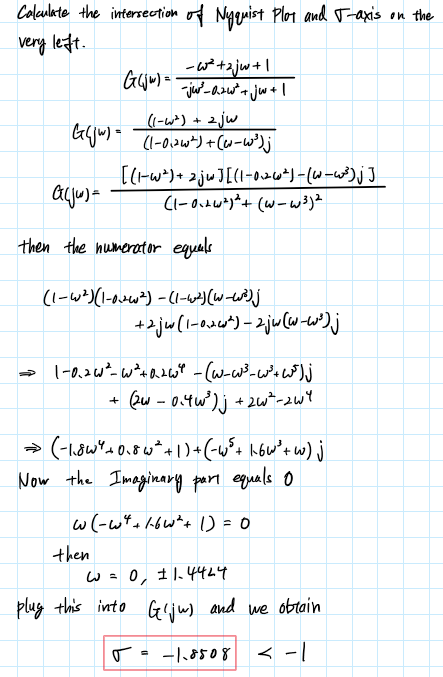 Calculate the intersection of Nyquist Plot and σ-axis on the
very left.
G(jω) = (-ω²+2jω+1) / (-jω³-0.2ω²+jω+1)
G(jω) = ((1-ω²) + 2jω) / ((1-0.2ω²)+(ω-ω³)j)
G(jω) = [(1-ω²)+2jω][(1-0.2ω²)-(ω-ω³)j] / ((1-0.2ω²)²+(ω-ω³)²)
then the numerator equals
(1-ω²)(1-0.2ω²) -(1-ω²)(ω-ω³)j
+2jω(1-0.2ω²) -2jω(ω-ω³)j
⇒ 1-0.2ω²-ω²+0.2ω⁴ -(ω-ω³-ω³+ω⁵)j
+ (2ω - 0.4ω³)j +2ω²-2ω⁴
⇒ (-1.8ω⁴+0.8ω²+1)+(-ω⁵+1.6ω³+ω)j
Now the Imaginary part equals 0
ω(-ω⁴+1.6ω²+1) = 0
then
ω = 0, ±1.4424
plug this into G(jω) and we obtain
σ = -1.8508 < -1